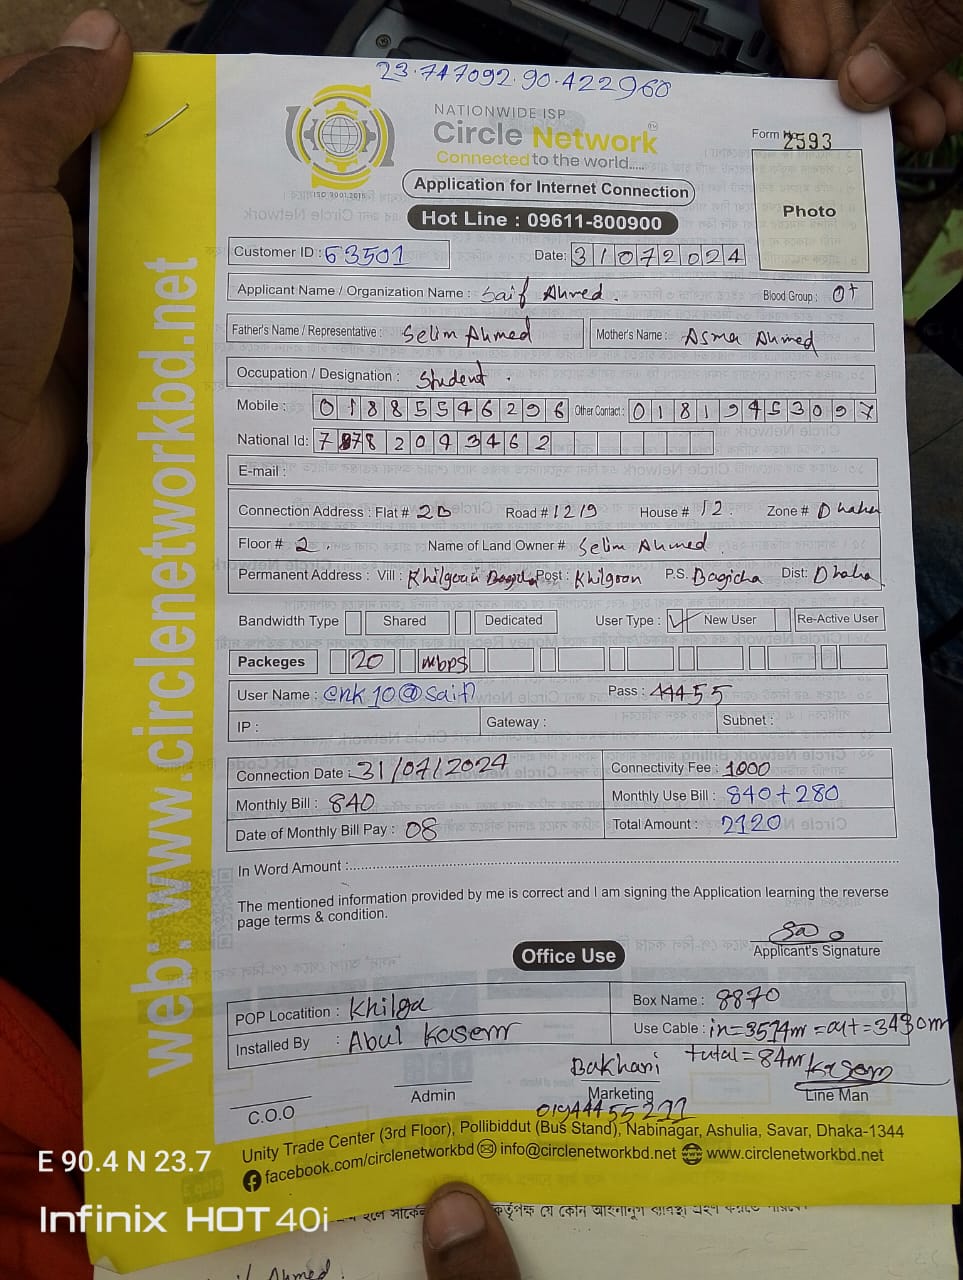 23.747092.90.422960
NATIONWIDE ISP
Circle Network
Connected to the world.....
ISO 9001:2015
Form No
2593
Application for Internet Connection
Photo
Hot Line : 09611-800900
Customer ID : 63501 Date: 31072024
Applicant Name / Organization Name : Saif Ahmed. Blood Group : O+
Father's Name / Representative : Selim Ahmed Mother's Name : Asma Ahmed
Occupation / Designation : Student.
Mobile : 01885546296 Other Contact : 01819453097
National Id: 7 8 2043462
E-mail :
Connection Address : Flat # 2B Road # 1219 House # 12. Zone # Dhaka
Floor # 2. Name of Land Owner # Selim Ahmed.
Permanent Address : Vill : Khilgaon Bagicha Post : Khilgaon P.S. Bagicha Dist: Dhaka
Bandwidth Type Shared Dedicated User Type : ✓ New User Re-Active User
Packeges 20 mbps
User Name : cnk10@saif1 Pass : 44455
IP : Gateway : Subnet :
Connection Date : 31/07/2024 Connectivity Fee : 1000
Monthly Bill : 840 Monthly Use Bill : 840+280
Date of Monthly Bill Pay : 08 Total Amount : 2120
In Word Amount :
The mentioned information provided by me is correct and I am signing the Application learning the reverse
page terms & condition.
Applicant's Signature
Office Use
POP Locatition : Khilga Box Name : 8870
Installed By : Abul Kasem Use Cable : in=3574m =out=3490m
total=84m
Bakhani Kasem
C.O.O Admin Marketing Line Man
01944455211
Unity Trade Center (3rd Floor), Pollibiddut (Bus Stand), Nabinagar, Ashulia, Savar, Dhaka-1344
facebook.com/circlenetworkbd info@circlenetworkbd.net www.circlenetworkbd.net
web: www.circlenetworkbd.net
E 90.4 N 23.7
Infinix HOT 40i
Ahmed.